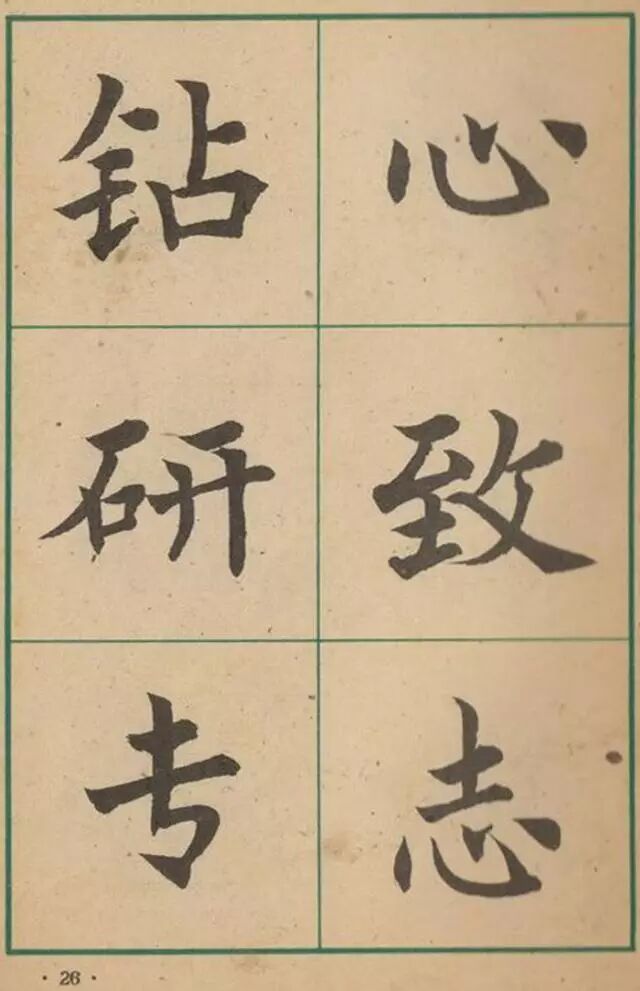 心致志
钻研专
· 26 ·